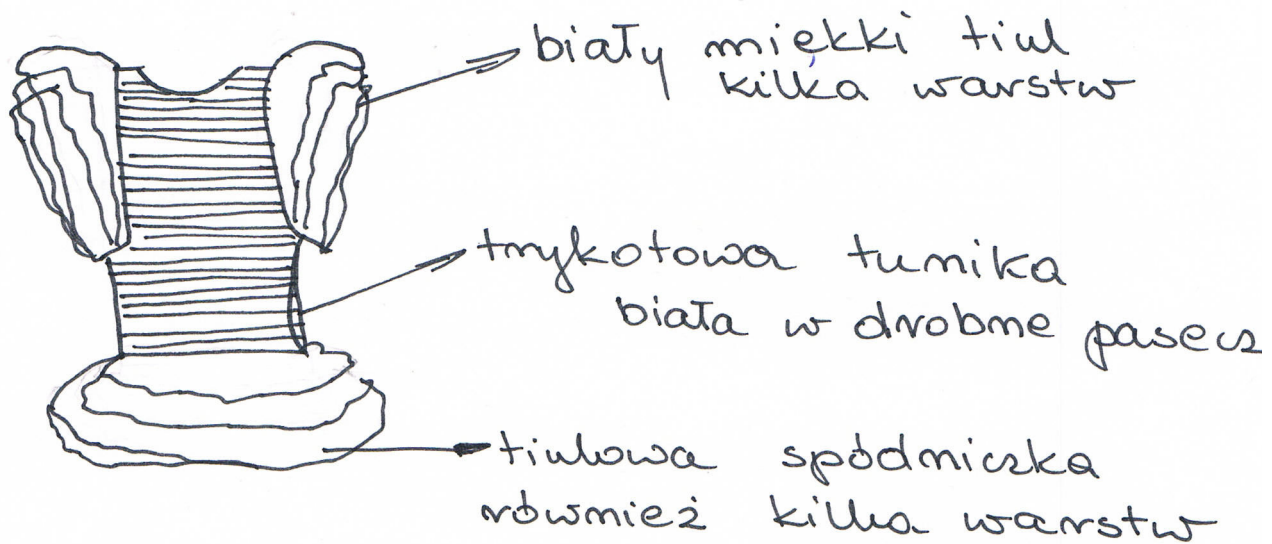 biały miękki tiul
kilka warstw
trykotowa tunika
biała w drobne pasecz
tiulowa spódniczka
również kilka warstw